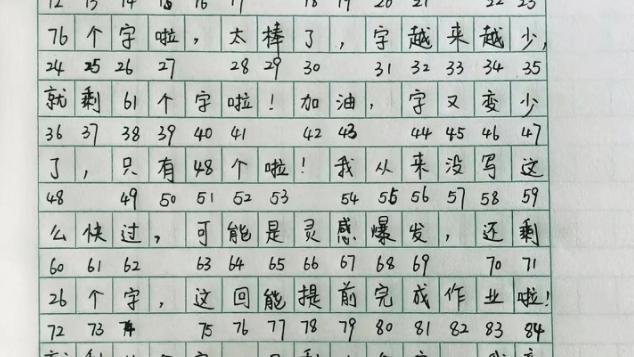 12 13 14 15 16 17 18 19 20 21 22 23
76个字啦，太棒了，字越来越少，
24 25 26 27 28 29 30 31 32 33 34 35
就剩61个字啦！加油，字又变少
36 37 38 39 40 41 42 43 44 45 46 47
了，只有48个啦！我从来没写这
48 49 50 51 52 53 54 55 56 57 58 59
么快过，可能是灵感爆发，还剩
60 61 62 63 64 65 66 67 68 69 70 71
26个字，这回能提前完成作业啦！
72 73 74 75 76 77 78 79 80 81 82 83 84